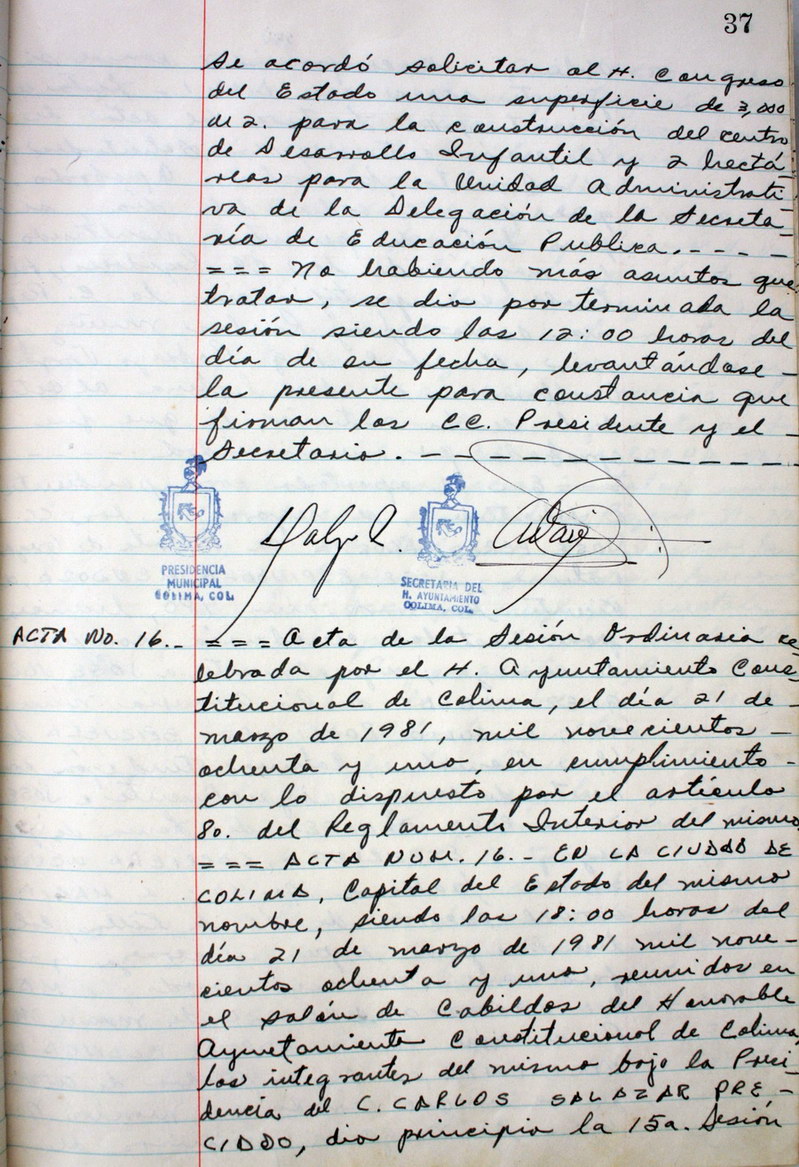 37
Se acordó solicitar al H. Congreso
del Estado una superficie de 3,000
M2. para la construcción del centro
de Desarrollo Infantil y 2 hectá-
reas para la Unidad Administrati
va de la Delegación de la Secreta-
ría de Educación Publica. - - - -
= = = No habiendo más asuntos que
tratar, se dio por terminada la
sesión siendo las 12:00 horas del
día de su fecha, levantándose -
la presente para constancia que
firman los CC. Presidente y el -
Secretario. - - - - - - - - - - - -
PRESIDENCIA
MUNICIPAL
COLIMA, COL.
SECRETARIA DEL
H. AYUNTAMIENTO
COLIMA, COL.
ACTA No. 16.- = = = Acta de la Sesión Ordinaria ce-
lebrada por el H. Ayuntamiento Cons-
titucional de Colima, el día 21 de -
marzo de 1981, mil novecientos -
ochenta y uno, en cumplimiento -
con lo dispuesto por el artículo
80. del Reglamento Interior del mismo
= = = ACTA NUM. 16.- EN LA CIUDAD DE
COLIMA, Capital del Estado del mismo
nombre, siendo las 18:00 horas del
día 21 de marzo de 1981 mil nove-
cientos ochenta y uno, reunidos en
el salón de Cabildos del Honorable
Ayuntamiento Constitucional de Colima,
los integrantes del mismo bajo la Presi-
dencia del C. CARLOS SALAZAR PRE -
CIADO, dio principio la 15a. Sesión